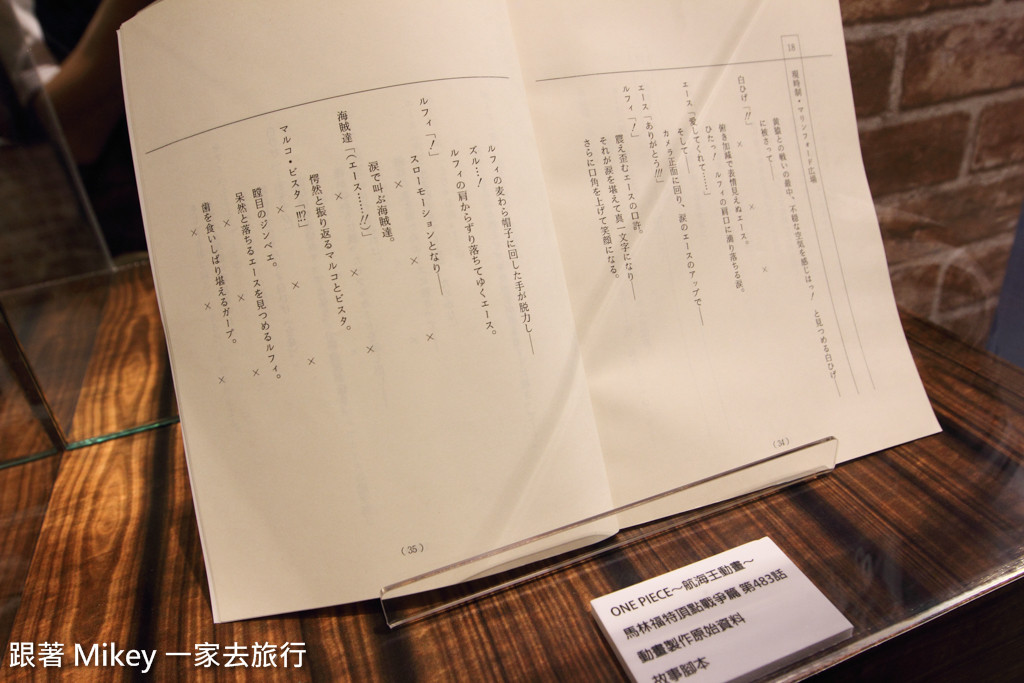 18 現時刻・マリンフォード広場
黄猿との戦いの最中、不穏な空気を感じはっ!と見つめる白ひげ
に被さって――
白ひげ「!!」
× × ×
俯き加減で表情見えぬエース。
ひたっ! ルフィの肩口に滴り落ちる涙。
エース「愛してくれて……」
そして――
カメラ正面に回り、涙のエースのアップで――
エース「ありがとう!!!」
ルフィ「!」
震え歪むエースの口許。
それが涙を堪えて真一文字になり――
さらに口角を上げて笑顔になる。
(34)
ルフィの麦わら帽子に回した手が脱力し――
ズル…!
ルフィの肩からずり落ちてゆくエース。
ルフィ「!」
スローモーションとなり――
× × ×
涙で叫ぶ海賊達。
海賊達「(エース……!!)」
× × ×
愕然と振り返るマルコとビスタ。
マルコ・ビスタ「!!?」
× × ×
瞠目のジンベエ。
呆然と落ちるエースを見つめるルフィ。
× × ×
歯を食いしばり堪えるガープ。
× × ×
(35)
ONE PIECE~航海王動畫~
馬林福特頂點戰爭篇 第483話
動畫製作原始資料
故事腳本
跟著 Mikey 一家去旅行